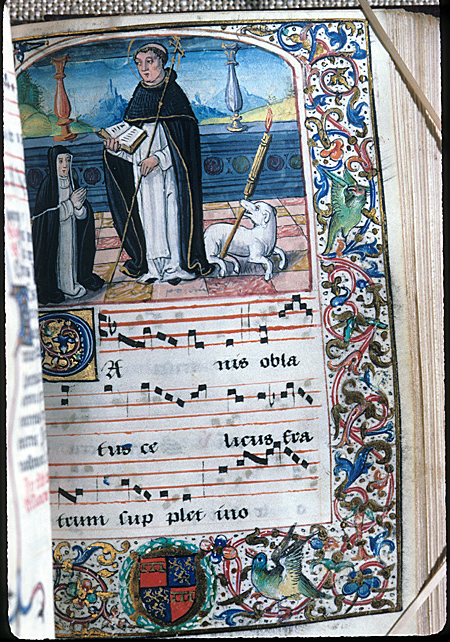 PA nis obla
tus ce litus fra
trum sup plet ino